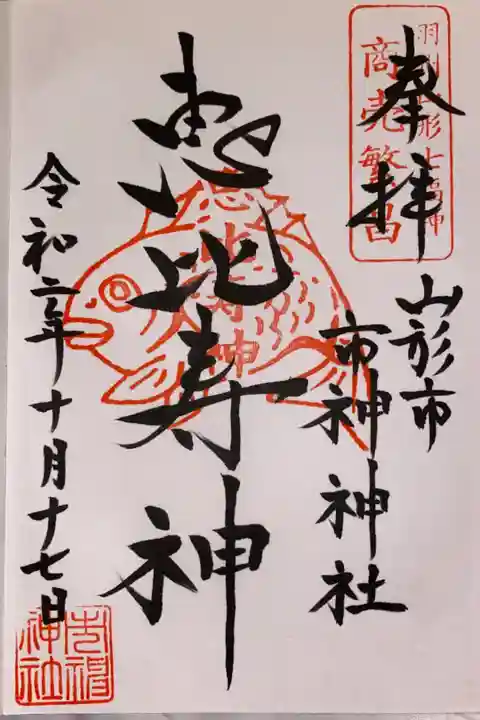 奉拝
羽州山形七福神
商売繁昌
山形市
市神神社
恵比寿神
恵比寿神
令和二年十月十七日
市神
神社